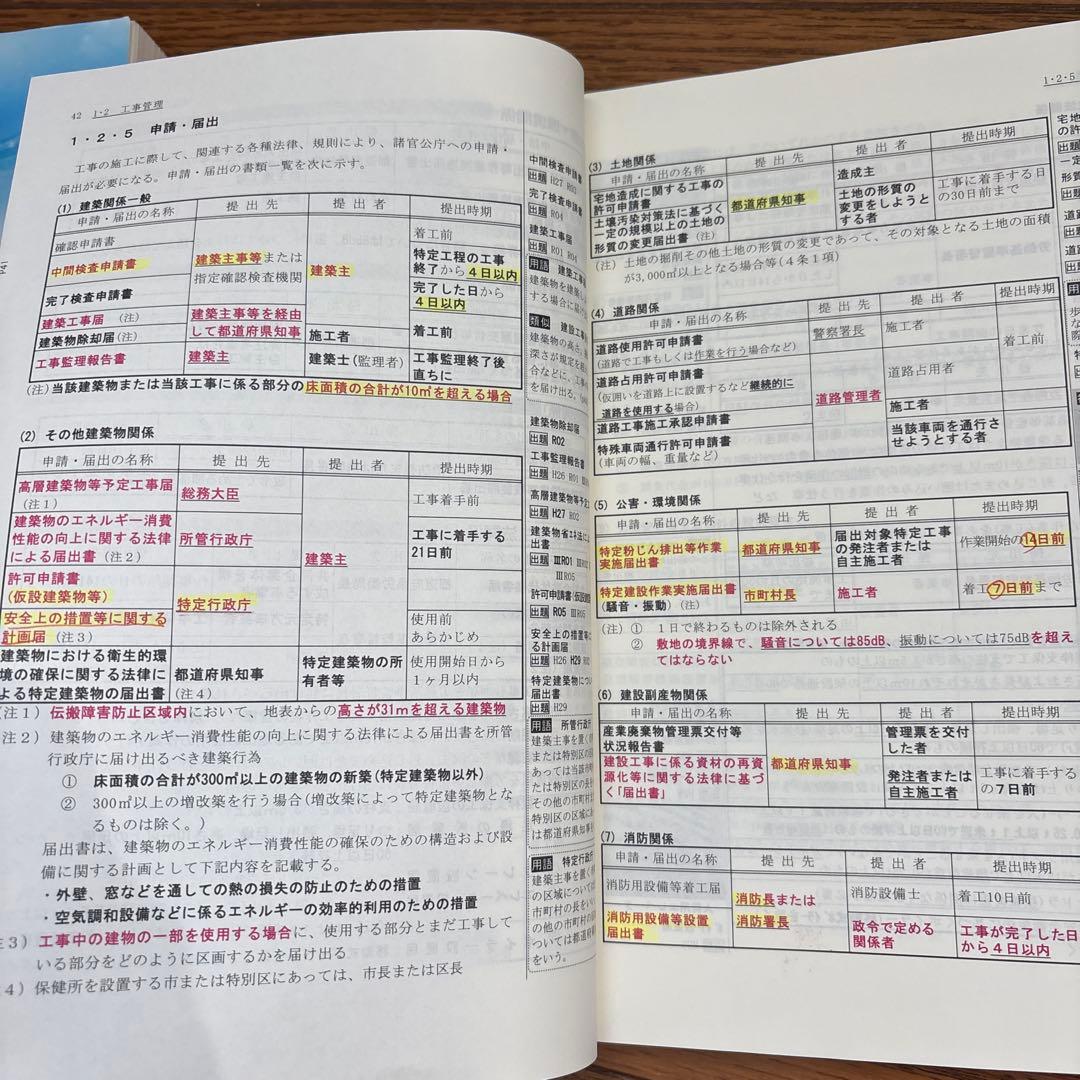 42 1・2 工事管理
1・2・5 申請・届出
工事の施工に際して、関連する各種法律、規則により、諸官公庁への申請・
届出が必要になる。申請・届出の書類一覧を次に示す。
(1) 建築関係一般
申請・届出の名称 提出先 提出者 提出時期
確認申請書 建築主事等または 指定確認検査機関 建築主 着工前
中間検査申請書 特定工程の工事
終了から4日以内
完了検査申請書 完了した日から
4日以内
建築工事届 (注) 建築主事等を経由
して都道府県知事 着工前
建築物除却届(注) 施工者
工事監理報告書 建築主 建築士(監理者) 工事監理終了後
直ちに
(注)当該建築物または当該工事に係る部分の床面積の合計が10㎡を超える場合
(2) その他建築物関係
申請・届出の名称 提出先 提出者 提出時期
高層建築物等予定工事届
(注1) 総務大臣 建築主 工事着手前
建築物のエネルギー消費
性能の向上に関する法律
による届出書(注2) 所管行政庁 工事に着手する
21日前
許可申請書
(仮設建築物等) 特定行政庁
安全上の措置等に関する
計画届(注3) 使用前
あらかじめ
建築物における衛生的環
境の確保に関する法律に
よる特定建築物の届出書 都道府県知事
(注4) 特定建築物の所
有者等 使用開始日から
1ヶ月以内
(注1) 伝搬障害防止区域内において、地表からの高さが31mを超える建築物
注2) 建築物のエネルギー消費性能の向上に関する法律による届出書を所管
行政庁に届け出るべき建築行為
① 床面積の合計が300㎡以上の建築物の新築(特定建築物以外)
② 300㎡以上の増改築を行う場合(増改築によって特定建築物とな
るものは除く。)
届出書は、建築物のエネルギー消費性能の確保のための構造および設
備に関する計画として下記内容を記載する。
・外壁、窓などを通しての熱の損失の防止のための措置
・空気調和設備などに係るエネルギーの効率的利用のための措置
3) 工事中の建物の一部を使用する場合に、使用する部分とまだ工事して
いる部分をどのように区画するかを届け出る
4) 保健所を設置する市または特別区にあっては、市長または区長
中間検査申請書
出題 H27 R03
完了検査申請書
出題 R04
建築工事届
出題 R01 R04
用語 建築工事
建築物を建築し
する場合に届け
類似 建設工事
建築物の高さ、
深さが規定を超
合などに、工事
を届け出る。
建築物除却届
出題 R02
工事監理報告書
出題 H26 R01
高層建築物等予定工
出題 H27 R02
建築物省エネ法によ
出書
出題 ⅢR01
ⅢR05
許可申請書(仮設建
出題 R05 ⅢR05
安全上の措置等に関
する計画届
出題 H26 H29 R02
特定建築物につい
届出書
出題 H29
用語 所管行政庁
建築主事を置く
または特別区の
あっては当該市
特別区の区長を
その他の市町村
特別区の区域に
は都道府県知事を
用語 特定行政庁
建築主事を置く
の区域について
市町村の長をい
の他の市町村の
ついては都道府
をいう。
1・2・5
(3) 土地関係
申請・届出の名称 提出先 提出者 提出時期
宅地造成に関する工事の
許可申請書 都道府県知事 造成主
土壌汚染対策法に基づく
一定の規模以上の土地の
形質の変更届出書(注) 土地の形質の
変更をしようと
する者 工事に着手する日
の30日前まで
(注) 土地の掘削その他土地の形質の変更であって、その対象となる土地の面積
が3,000㎡以上となる場合等(4条1項)
(4) 道路関係
申請・届出の名称 提出先 提出者 提出時期
道路使用許可申請書
(道路で工事もしくは作業を行う場合など) 警察署長 施工者 着工前
道路占用許可申請書
(仮囲いを道路上に設置するなど継続的に
道路を使用する場合) 道路管理者 道路占用者
道路工事施工承認申請書 施工者
特殊車両通行許可申請書
(車両の幅、重量など) 当該車両を通行さ
せようとする者
(5) 公害・環境関係
申請・届出の名称 提出先 提出者 提出時期
特定粉じん排出等作業
実施届出書 都道府県知事 届出対象特定工事
の発注者または
自主施工者 作業開始の14日前
特定建設作業実施届出書
(騒音・振動)(注) 市町村長 施工者 着工7日前まで
(注) ① 1日で終わるものは除外される
② 敷地の境界線で、騒音については85dB、振動については75dBを超え
てはならない
(6) 建設副産物関係
申請・届出の名称 提出先 提出者 提出時期
産業廃棄物管理票交付等
状況報告書 都道府県知事 管理票を交付
した者
建設工事に係る資材の再資
源化等に関する法律に基づ
く「届出書」 発注者または
自主施工者 工事に着手する
の7日前
(7) 消防関係
申請・届出の名称 提出先 提出者 提出時期
消防用設備等着工届 消防長または
消防署長 消防設備士 着工10日前
消防用設備等設置
届出書 政令で定める
関係者 工事が完了した日
から4日以内